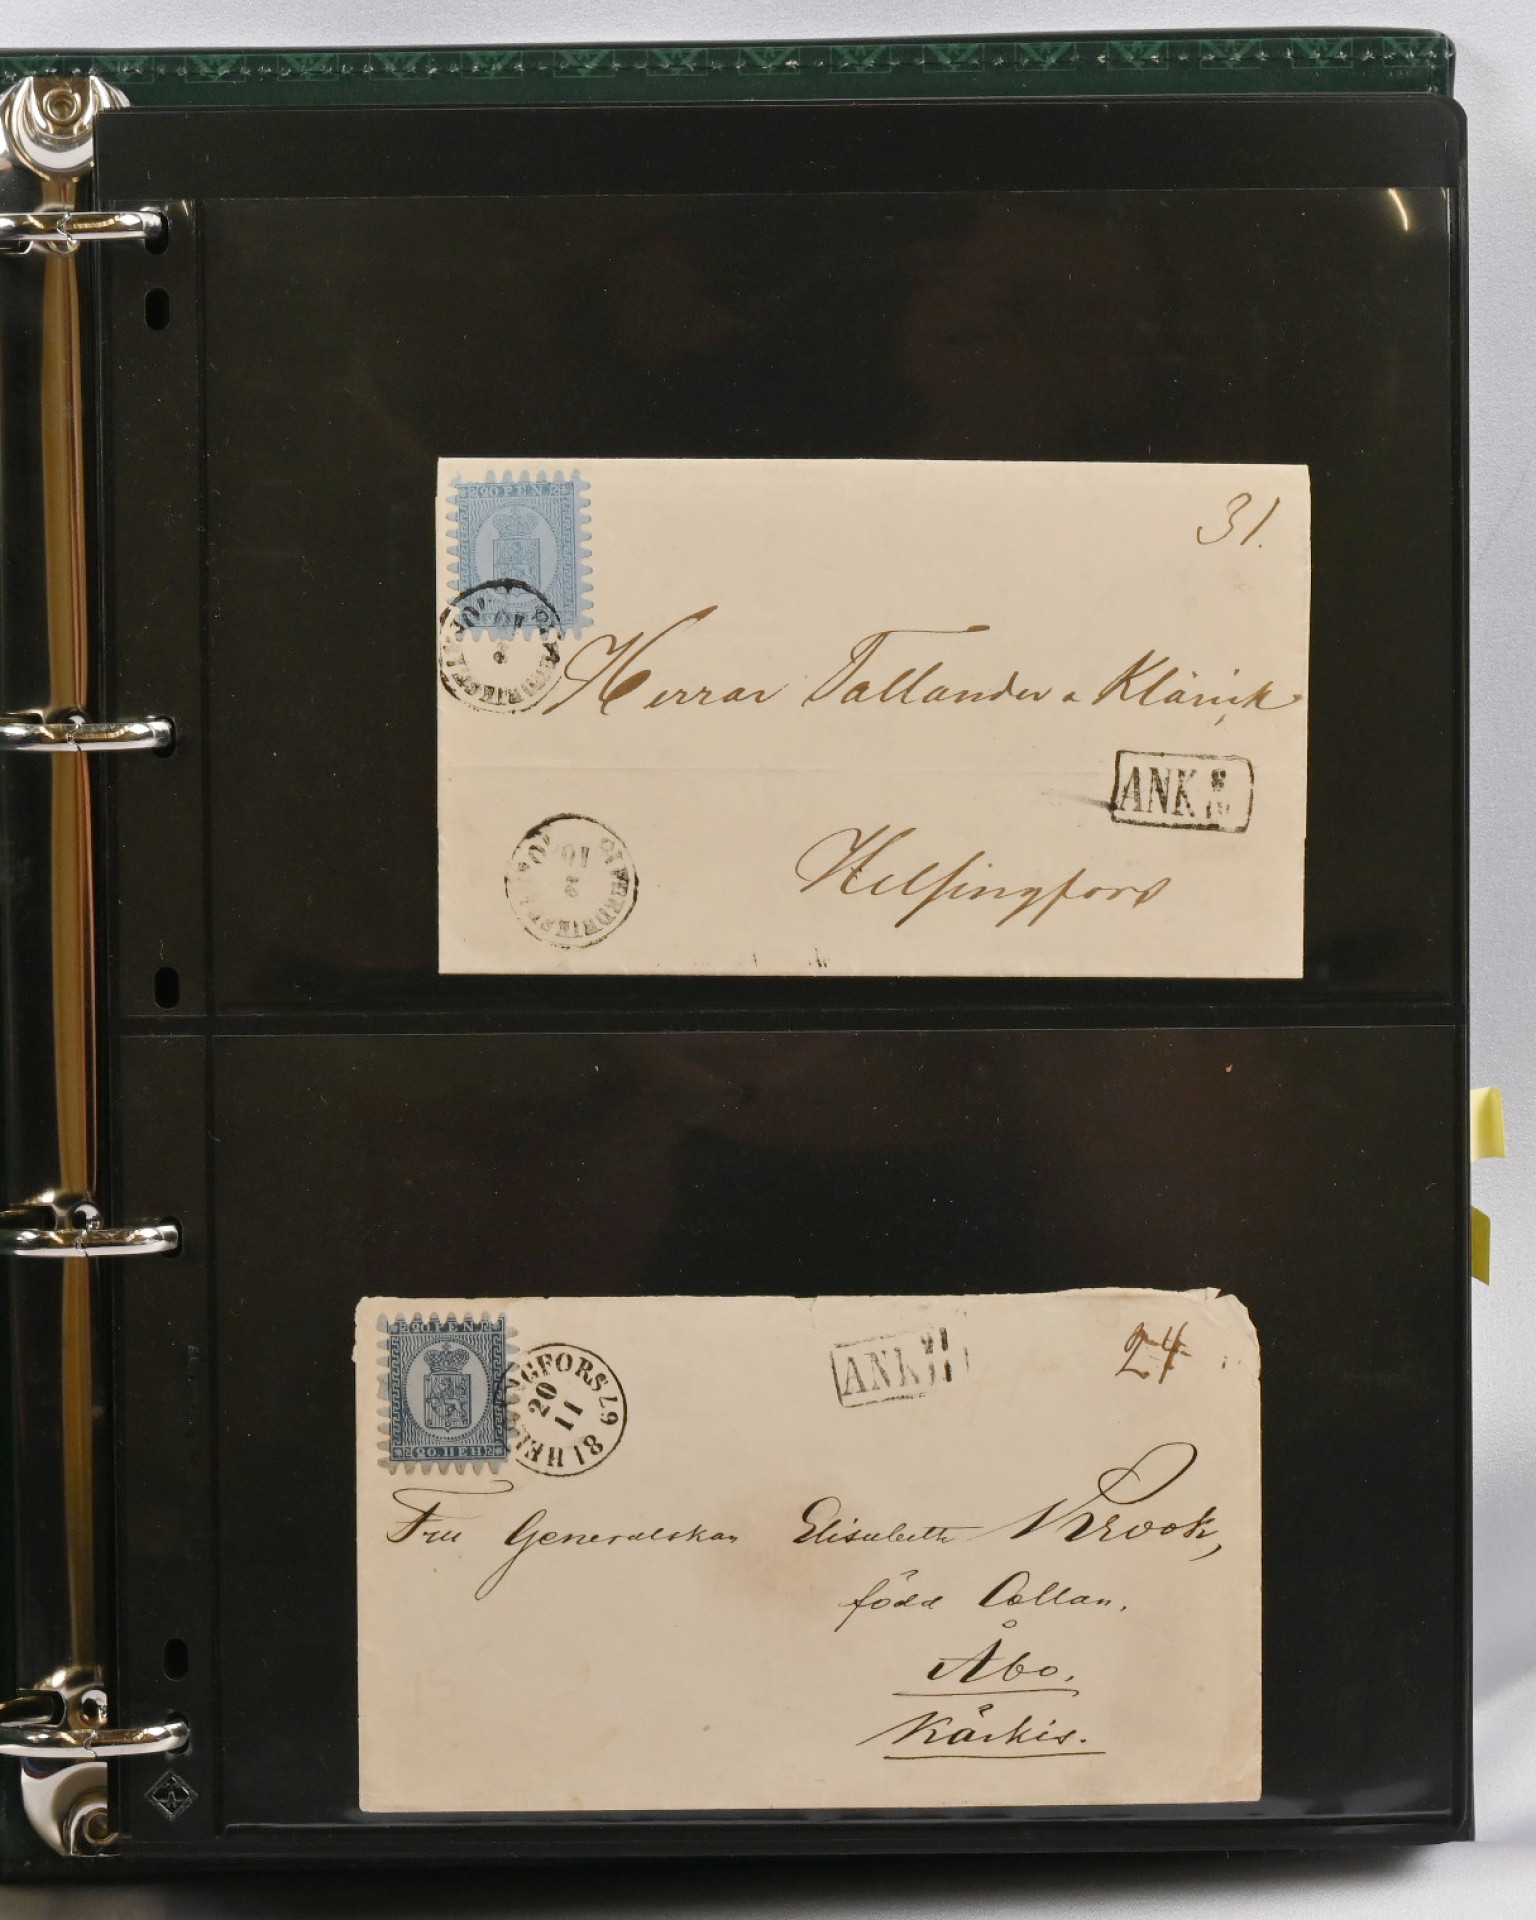 20 PEN.
31.
Herrar Tallander & Klärich
ANK
Helsingfors
10
20 PEN.
20. ПЕН
HELSINGFORS 1867
20
11
ANK 21
11
24
Fru Generalskan Elisabeth Krook,
född Collan.
Åbo.
Kärkis.